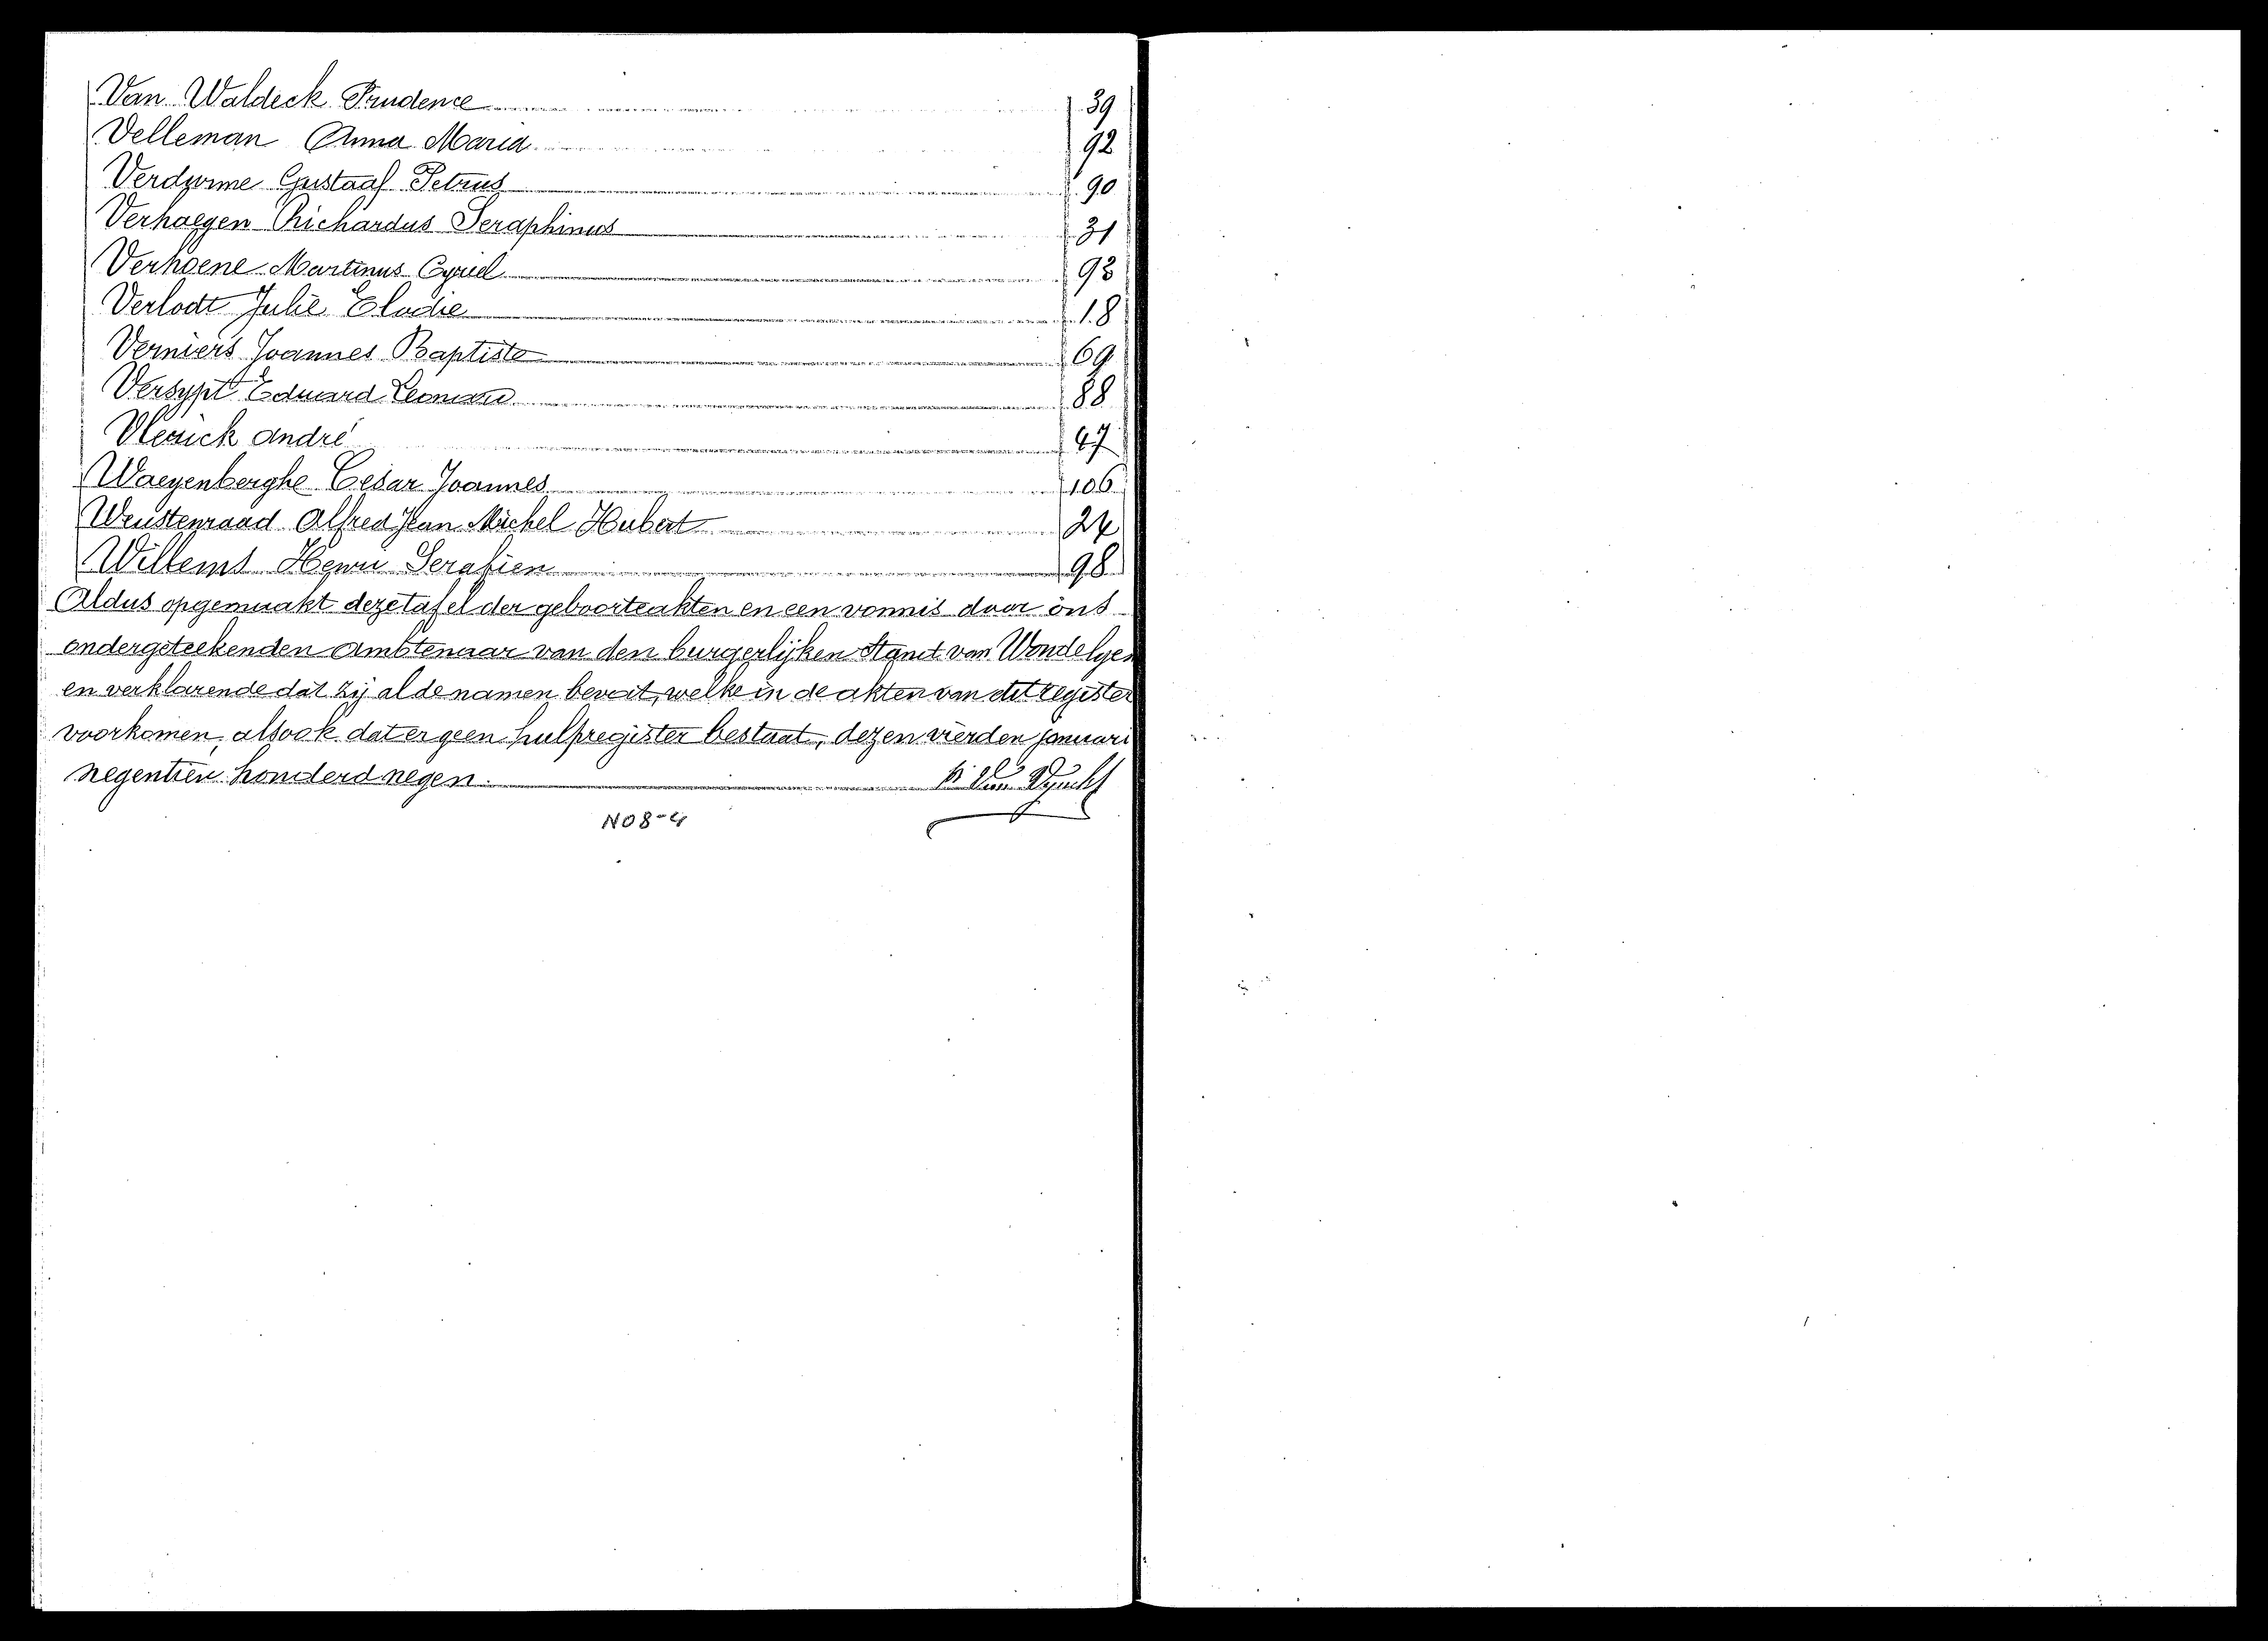 Van Waldeck Prudence 39
Velleman Anna Maria 92
Verdurme Gustaaf Petrus 90
Verhaegen Richardus Seraphinus 31
Verhoene Martinus Cyriel 93
Verlodt Julie Elodie 18
Verniers Joannes Baptiste 69
Versypt Eduard Leonard 88
Vlerick André 47
Waeyenberghe Cesar Joannes 106
Weustenraad Alfred Jean Michel Hubert 24
Willems Henri Serafien 98
Aldus opgemaakt deze tafel der geboorteakten en een vonnis door ons
ondergeteekenden Ambtenaar van den burgerlijken Stand van Wondelgem
en verklarende dat zij al de namen bevat, welke in de akten van dit register
voorkomen, alsook dat er geen hulpregister bestaat, dezen vierden januari
negentien honderd negen.
N08-4